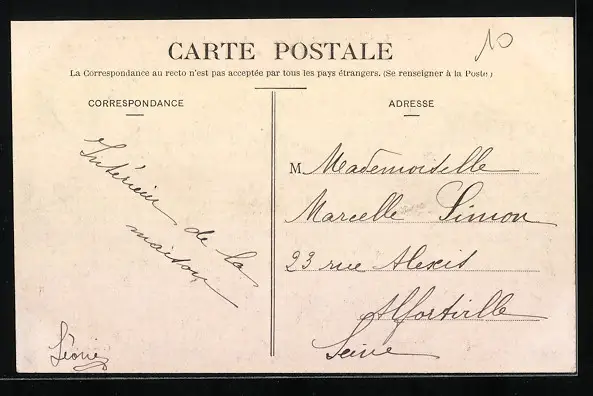 10
CARTE POSTALE
La Correspondance au recto n'est pas acceptée par tous les pays étrangers. (Se renseigner à la Poste)
CORRESPONDANCE
Intérieur de la
maison
Léonie
ADRESSE
M. Mademoiselle
Marcelle Simon
23 rue Alexis
Alfortville
Seine